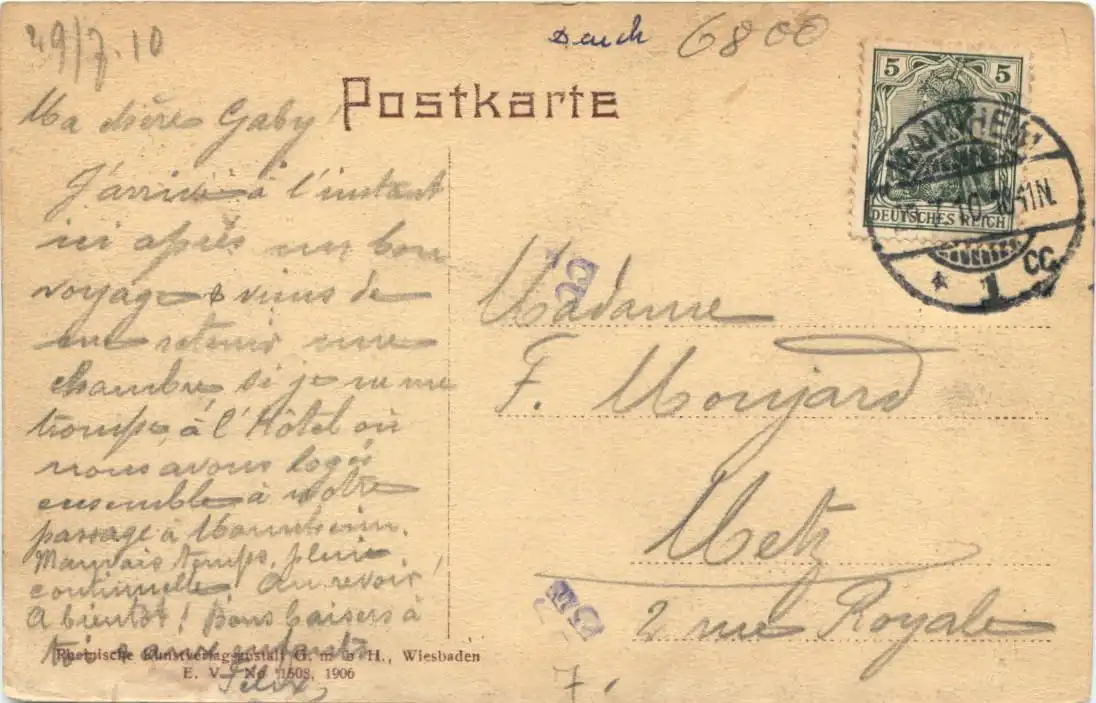 29/7.10
Dench 6800
Postkarte
5 5
DEUTSCHES REICH
MANNHEIM
11N.
* 1 CC
Ma chère Gaby!
J'arrive à l'instant
ici après un bon
voyage & viens de
me retenir une
chambre, si je ne me
trompe, à l'Hôtel où
nous avons logés
ensemble à notre
passage à Mannheim.
Mauvais temps, pluie
continuelle! Au revoir!
A bientôt! Bons baisers à
toi & aux enfants
Félix
Madame
F. Moujard
Metz
2 rue Royale
7.
Rheinische Kunstverlagsanstalt G. m. b. H., Wiesbaden
E. V. No 1508, 1906